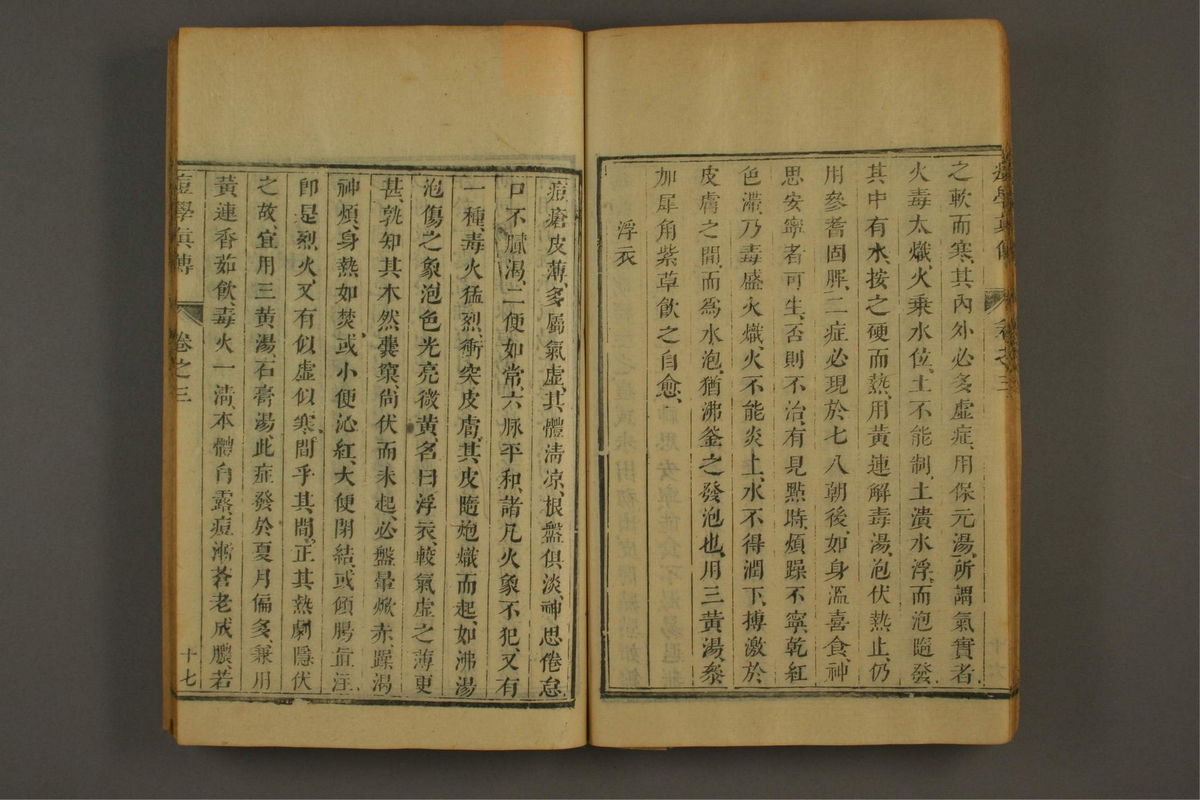 痘學真傳 卷之三
之軟而寒、其內外必多虛症、用保元湯、所謂氣實者、
火毒太熾、火乘水位、土不能制、土潰水浮、而泡隨發、
其中有水、按之硬而熱、用黃連解毒湯、泡伏熱止、仍
用參耆固脾、二症必現於七八朝後、如身溫喜食、神
思安寧者可生、否則不治、有見點時、煩躁不寧、乾紅
色滯、乃毒盛火熾、火不能炎上、水不得潤下、搏激於
皮膚之間、而為水泡、猶沸釜之發泡也、用三黃湯、叅
加犀角紫草飲之自愈、
浮衣
痘瘡皮薄、多屬氣虛、其體清凉、根盤俱淡、神思倦怠、
口不腻渴、二便如常、六脉平和、諸凡火象不犯、又有
一種、毒火猛烈、衝突皮膚、其皮隨炮熾而起、如沸湯
泡傷之象、泡色光亮微黃、名曰浮衣、較氣虛之薄更
甚、孰知其木然囊窠尚伏而未起、必盤暈焮赤、躁渴
神煩、身熱如焚、或小便沁紅、大便閉結、或傾腸直注、
卽是烈火、又有似虛似寒、間乎其間、正其熱劇隱伏
之故、宜用三黃湯石膏湯、此症發於夏月偏多、兼用
黃連香茹飲、毒火一清、本體自露、痘漸蒼老成膿、若
痘學真傳 卷之三 十七